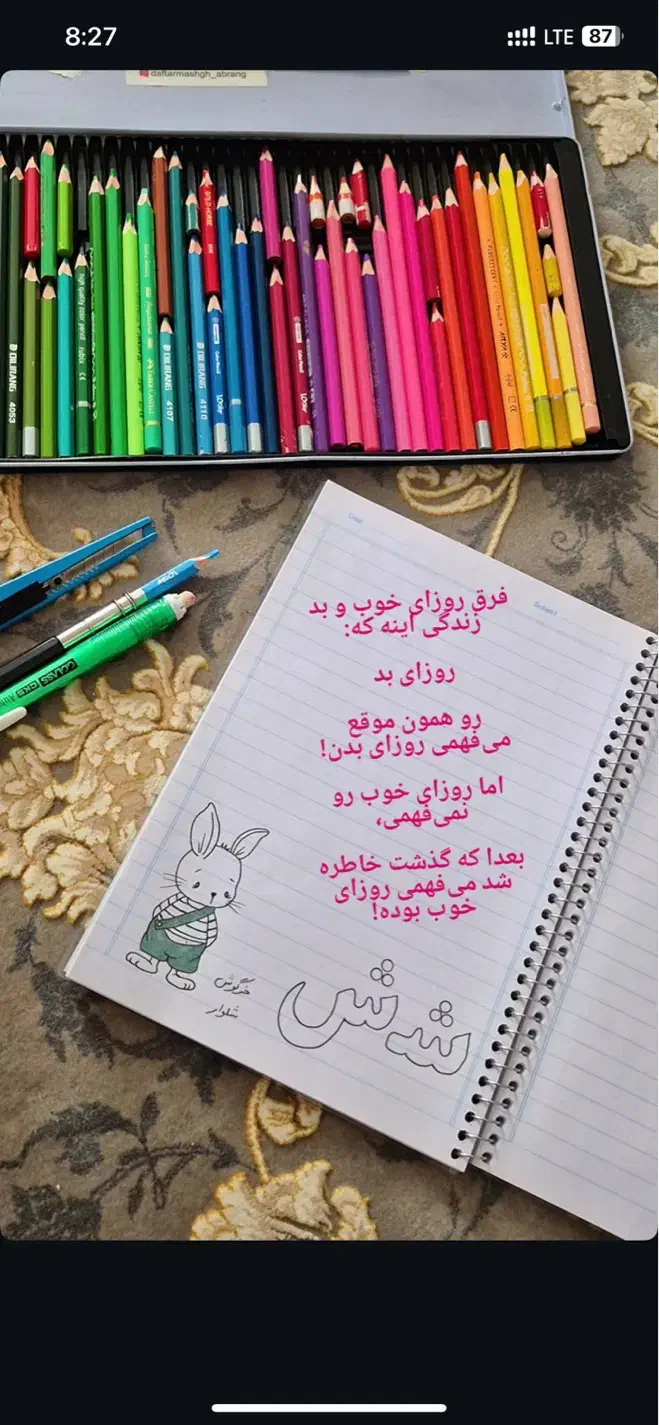 8:27
LTE 87
daftarmashgh_abrang
4053
4107
4110
Date:
Subject:
فرق روزای خوب و بد
زندگی اینه که:
روزای بد
رو همون موقع
می‌فهمی روزای بدن!
اما روزای خوب رو
نمی‌فهمی،
بعدا که گذشت خاطره
شد می‌فهمی روزای
خوب بوده!
خرگوش
شلوار
شـ ش